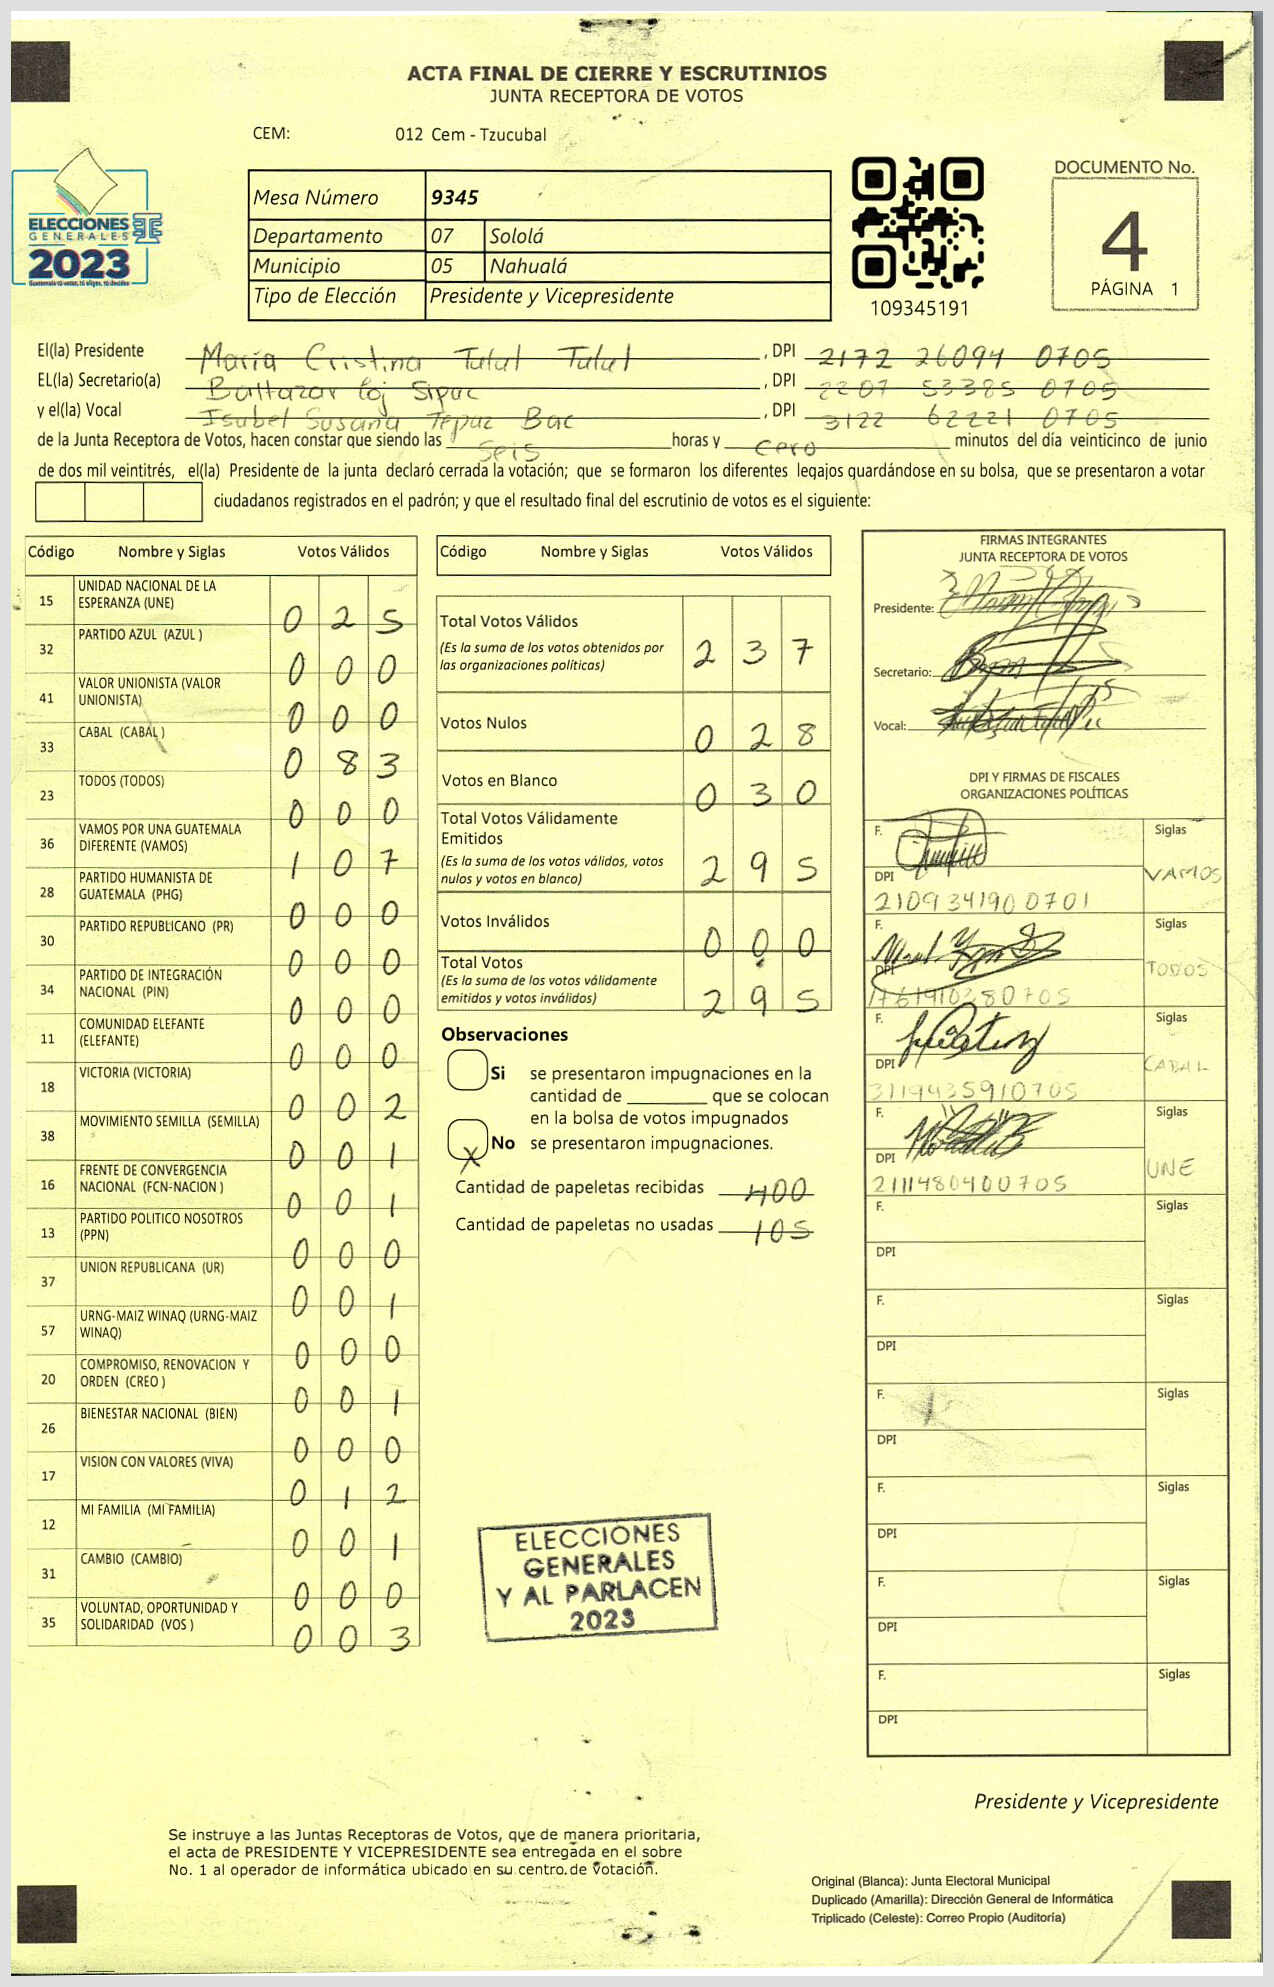 ACTA FINAL DE CIERRE Y ESCRUTINIOS
JUNTA RECEPTORA DE VOTOS
CEM: 012 Cem - Tzucubal
ELECCIONES
GENERALES
2023
Mesa Número 9345
Departamento 07 Sololá
Municipio 05 Nahualá
Tipo de Elección Presidente y Vicepresidente
109345191
DOCUMENTO No.
4
PÁGINA 1
El(la) Presidente María Cristina Tulul Tulul , DPI 2172 26094 0705
EL(la) Secretario(a) Baltazar Coj Sipac , DPI 2207 53385 0705
y el(la) Vocal Isabel Susana Tepaz Bac , DPI 3122 62221 0705
de la Junta Receptora de Votos, hacen constar que siendo las Seis horas y cero minutos del día veinticinco de junio
de dos mil veintitrés, el(la) Presidente de la junta declaró cerrada la votación; que se formaron los diferentes legajos guardándose en su bolsa, que se presentaron a votar
ciudadanos registrados en el padrón; y que el resultado final del escrutinio de votos es el siguiente:
Código Nombre y Siglas Votos Válidos
15 UNIDAD NACIONAL DE LA ESPERANZA (UNE) 0 2 5
32 PARTIDO AZUL (AZUL ) 0 0 0
41 VALOR UNIONISTA (VALOR UNIONISTA) 0 0 0
33 CABAL (CABAL ) 0 8 3
23 TODOS (TODOS) 0 0 0
36 VAMOS POR UNA GUATEMALA DIFERENTE (VAMOS) 1 0 7
28 PARTIDO HUMANISTA DE GUATEMALA (PHG) 0 0 0
30 PARTIDO REPUBLICANO (PR) 0 0 0
34 PARTIDO DE INTEGRACIÓN NACIONAL (PIN) 0 0 0
11 COMUNIDAD ELEFANTE (ELEFANTE) 0 0 0
18 VICTORIA (VICTORIA) 0 0 2
38 MOVIMIENTO SEMILLA (SEMILLA) 0 0 1
16 FRENTE DE CONVERGENCIA NACIONAL (FCN-NACION ) 0 0 1
13 PARTIDO POLITICO NOSOTROS (PPN) 0 0 0
37 UNION REPUBLICANA (UR) 0 0 1
57 URNG-MAIZ WINAQ (URNG-MAIZ WINAQ) 0 0 0
20 COMPROMISO, RENOVACION Y ORDEN (CREO ) 0 0 1
26 BIENESTAR NACIONAL (BIEN) 0 0 0
17 VISION CON VALORES (VIVA) 0 1 2
12 MI FAMILIA (MI FAMILIA) 0 0 1
31 CAMBIO (CAMBIO) 0 0 0
35 VOLUNTAD, OPORTUNIDAD Y SOLIDARIDAD (VOS ) 0 0 3
Código Nombre y Siglas Votos Válidos
Total Votos Válidos 2 3 7
(Es la suma de los votos obtenidos por
las organizaciones políticas)
Votos Nulos 0 2 8
Votos en Blanco 0 3 0
Total Votos Válidamente
Emitidos 2 9 5
(Es la suma de los votos válidos, votos
nulos y votos en blanco)
Votos Inválidos 0 0 0
Total Votos 2 9 5
(Es la suma de los votos válidamente
emitidos y votos inválidos)
Observaciones
Si se presentaron impugnaciones en la
cantidad de ________ que se colocan
en la bolsa de votos impugnados
X No se presentaron impugnaciones.
Cantidad de papeletas recibidas 400
Cantidad de papeletas no usadas 105
ELECCIONES
GENERALES
Y AL PARLACEN
2023
FIRMAS INTEGRANTES
JUNTA RECEPTORA DE VOTOS
Presidente:
Secretario:
Vocal:
DPI Y FIRMAS DE FISCALES
ORGANIZACIONES POLÍTICAS
F. Siglas
VAMOS
DPI
2109341900701
F. Siglas
TODOS
DPI
1761910380705
F. Siglas
CABAL
DPI
3119435910705
F. Siglas
UNE
DPI
2111480400705
F. Siglas
DPI
F. Siglas
DPI
F. Siglas
DPI
F. Siglas
DPI
F. Siglas
DPI
F. Siglas
DPI
Presidente y Vicepresidente
Se instruye a las Juntas Receptoras de Votos, que de manera prioritaria,
el acta de PRESIDENTE Y VICEPRESIDENTE sea entregada en el sobre
No. 1 al operador de informática ubicado en su centro de votación.
Original (Blanca): Junta Electoral Municipal
Duplicado (Amarilla): Dirección General de Informática
Triplicado (Celeste): Correo Propio (Auditoría)